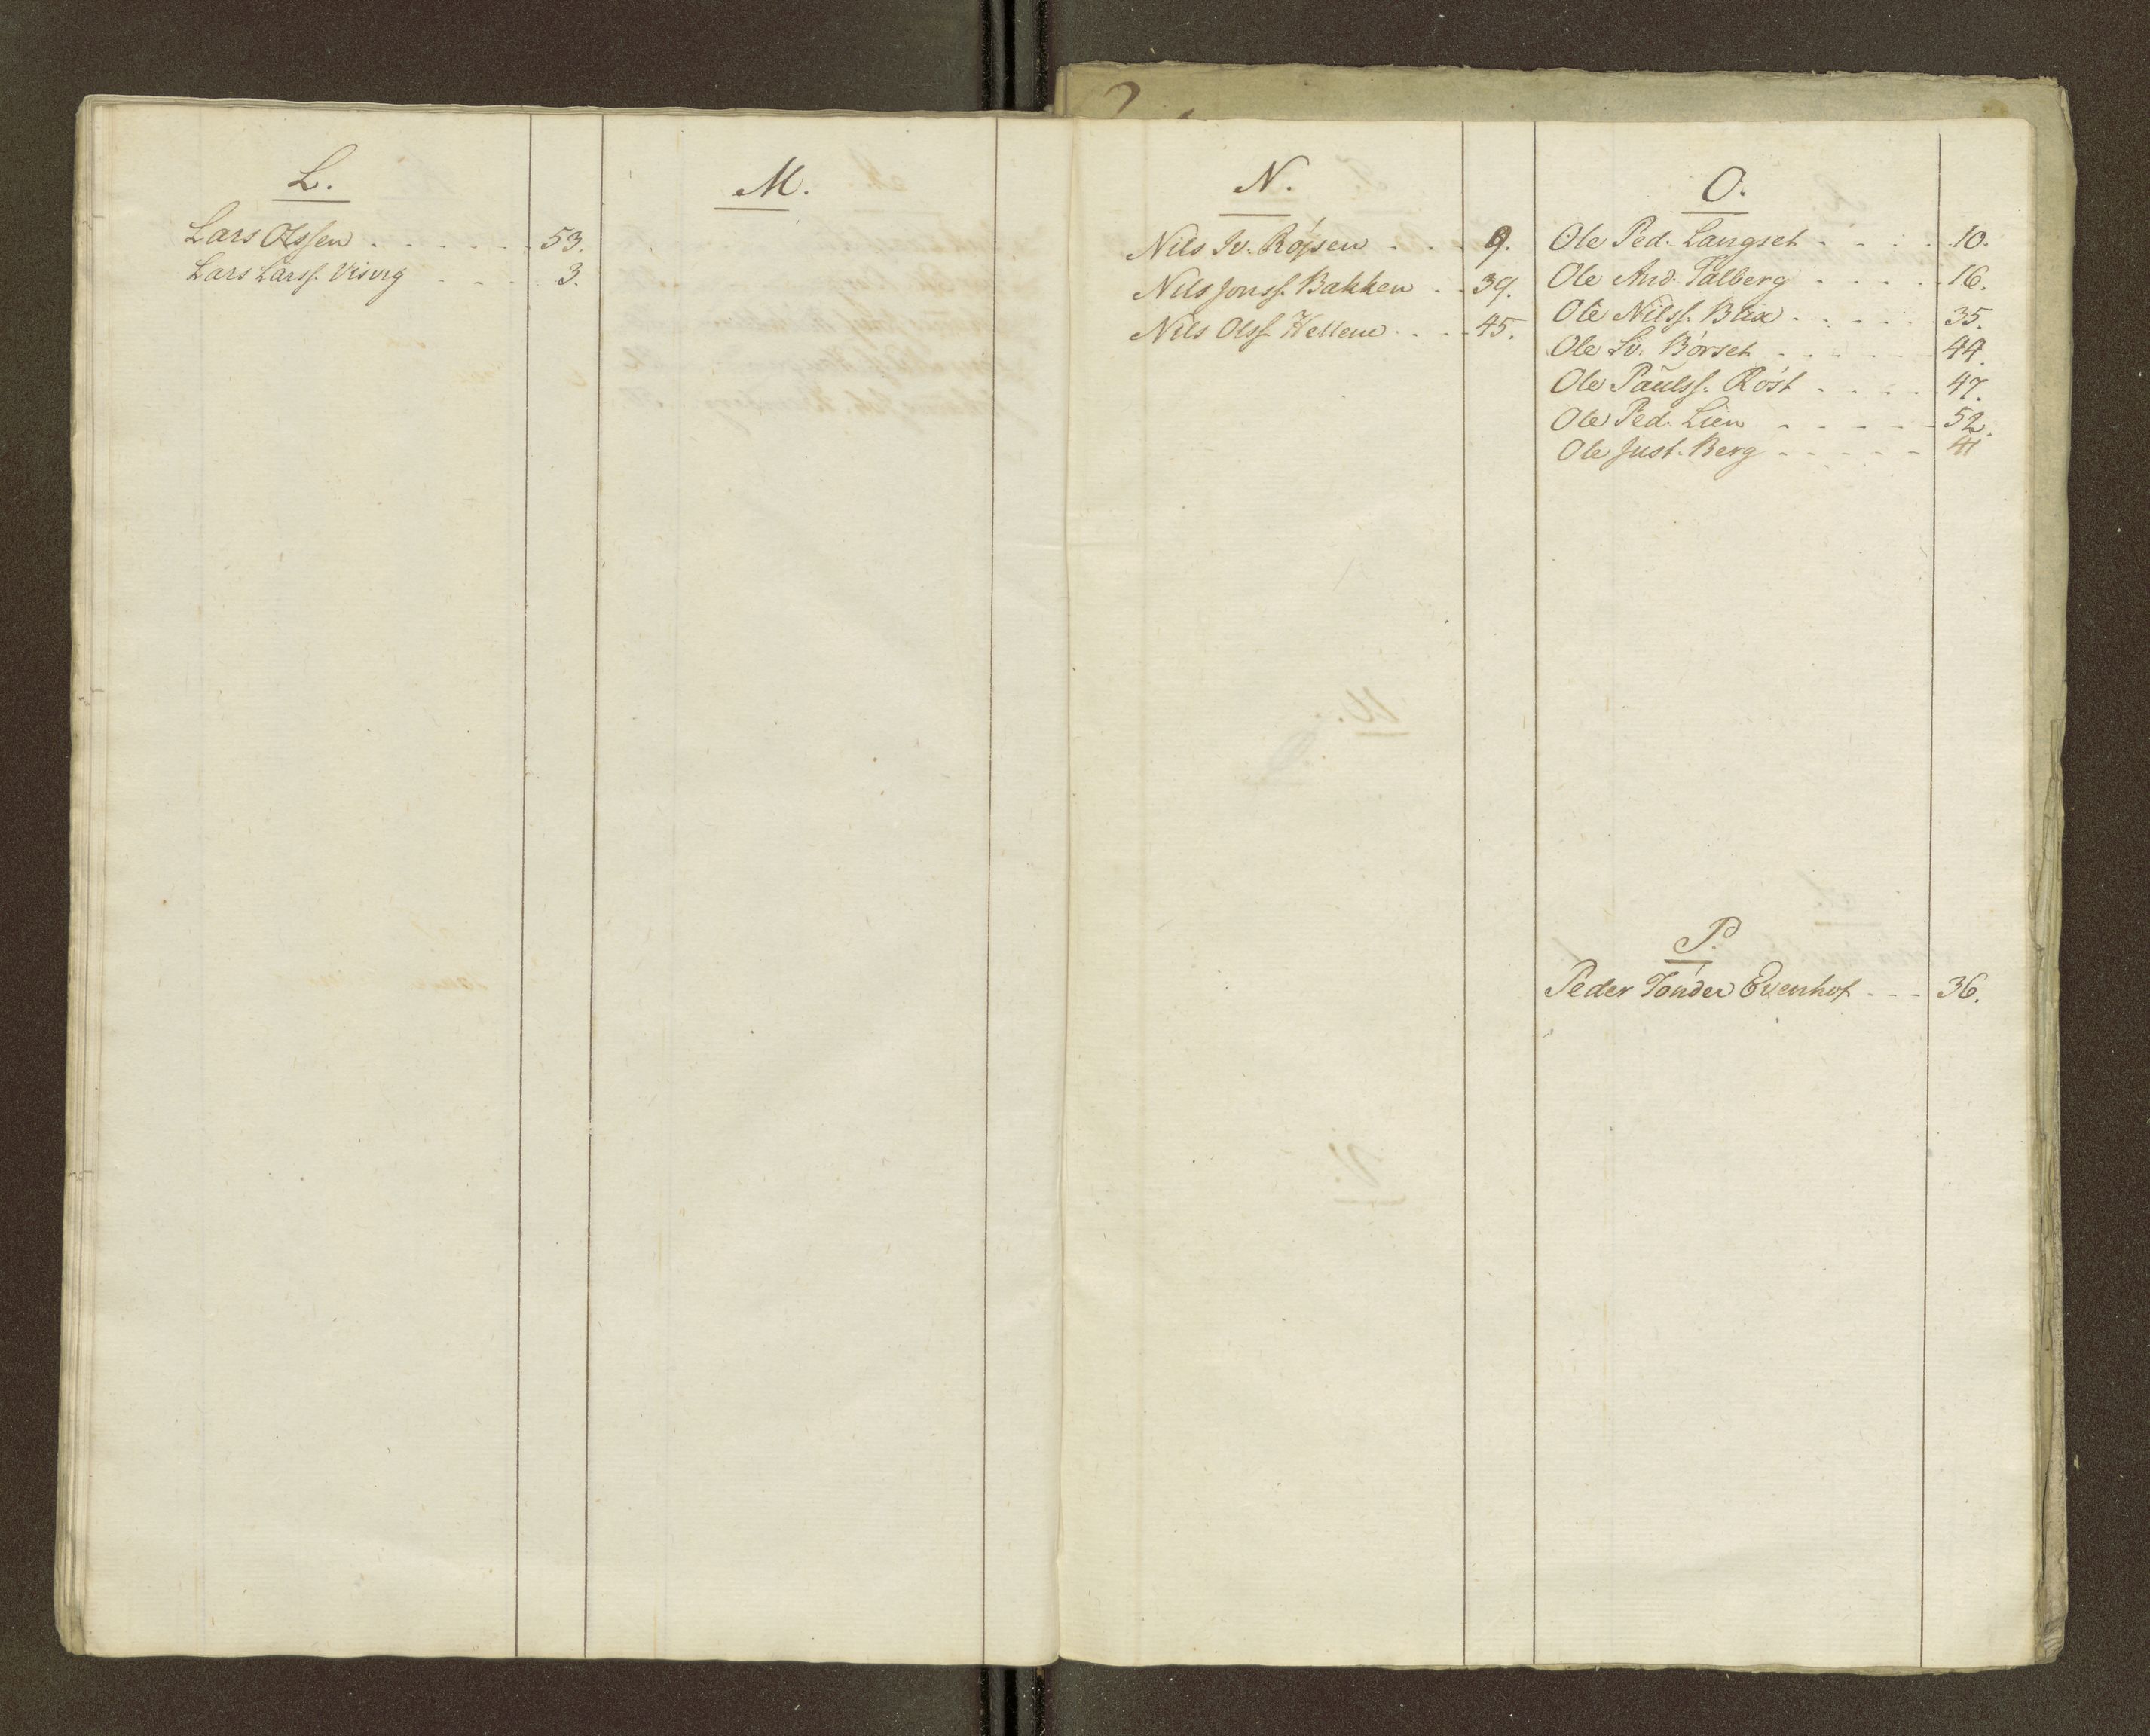 L.
Lars Olssen . . . . . . 53.
Lars Larss. Visvig . . . . 3.
M.
N.
Nils Iv. Röjsen . . . 9.
Nils Jonss. Bakken . . 39.
Nils Olss. Hellem . . . . 45.
O.
Ole Ped. Langset . . . . 10.
Ole And. Talberg . . . . . 16.
Ole Nilss. Blix . . . . . 35.
Ole Iv. Börset . . . . . . 44.
Ole Paulss. Röst . . . . 47.
Ole Ped. Lien - - - - - 52.
Ole Just. Berg - - - - - 41
P.
Peder Tönder Euenhof - - - 36.